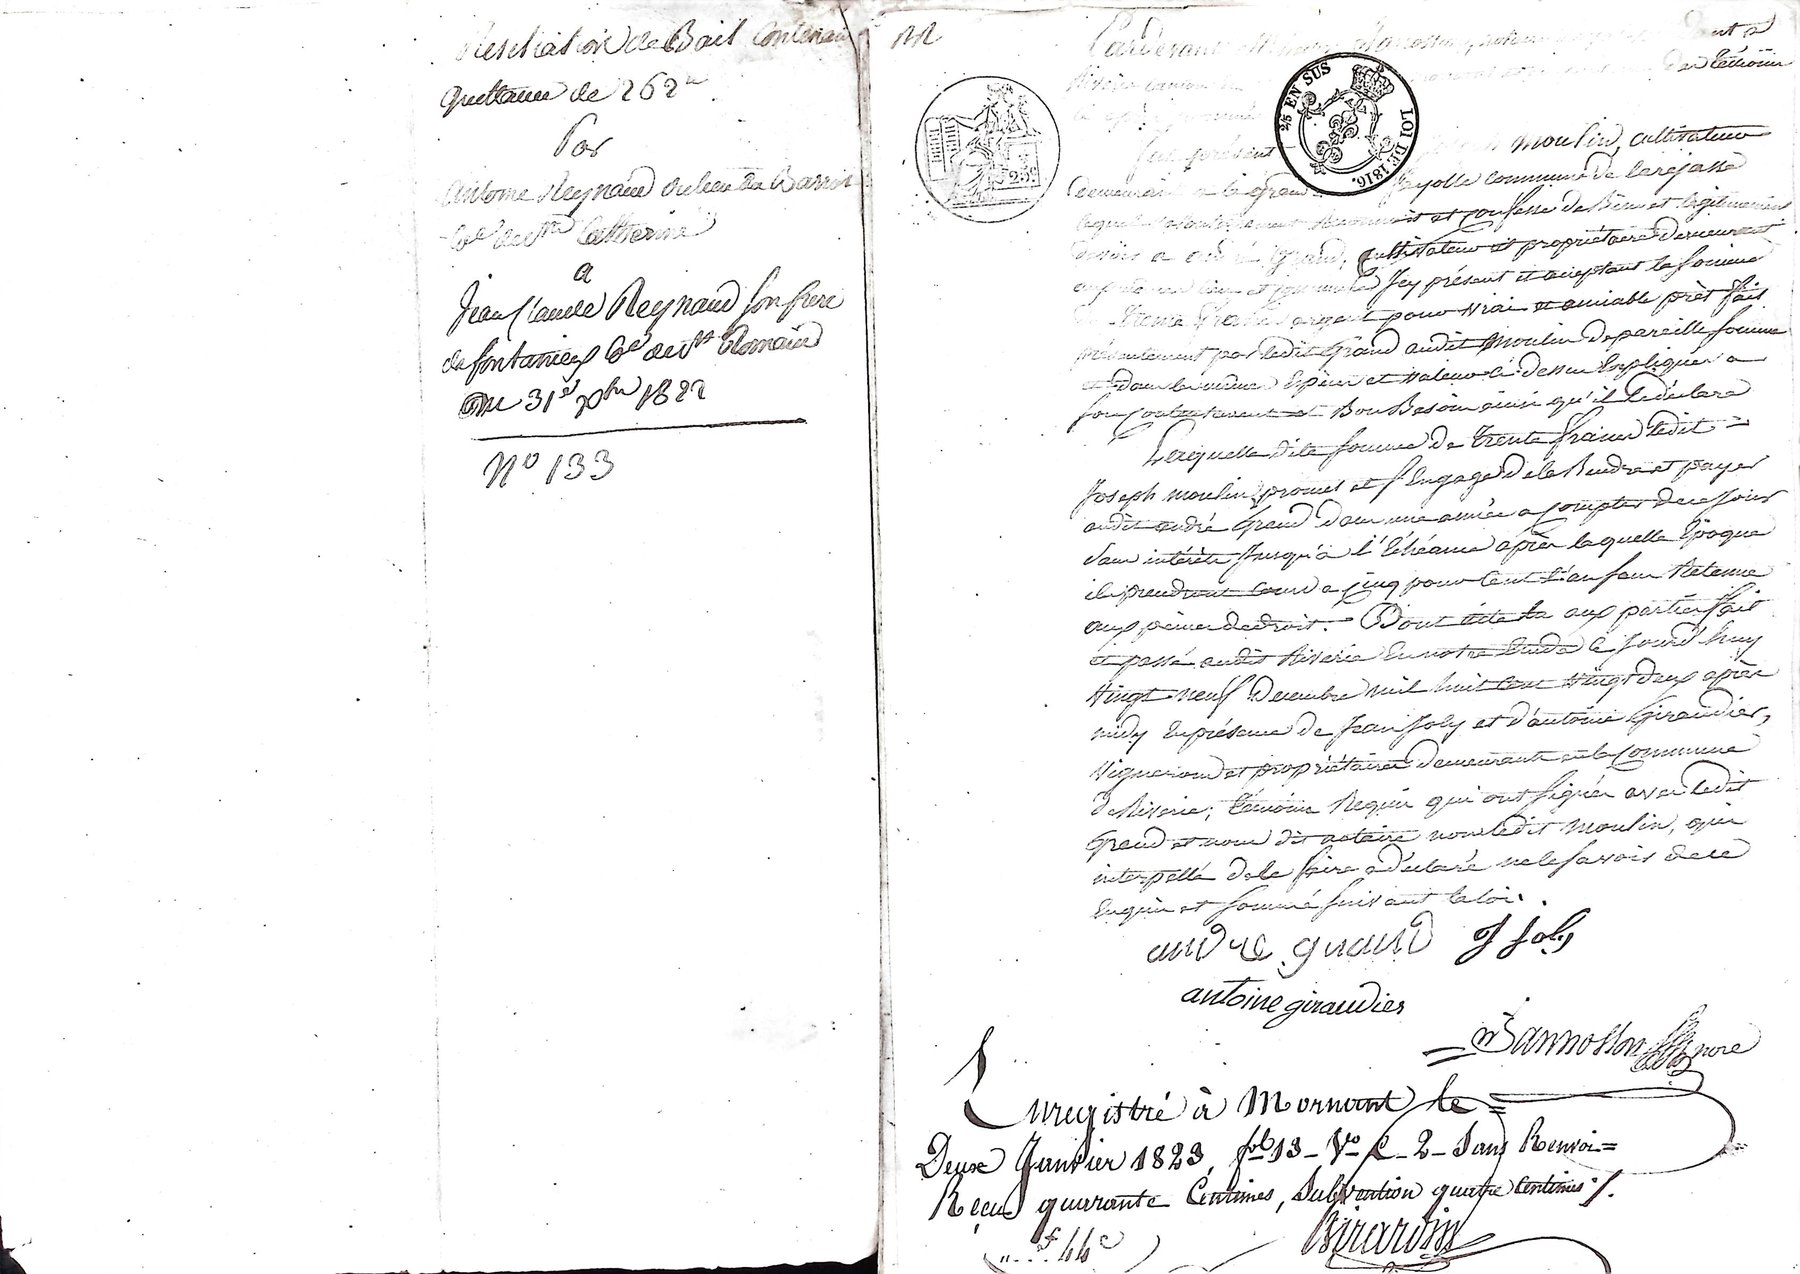 Résiliation de Bail Contenant
Quittance de 262
Par
Antoine Reynaud du lieu du Barrot
Cne de Ste Catherine
a
Jean Claude Reynaud son frere
de fontanies Cne de St Romain
Du 31e Xbre 1822
N° 133
Pardevant
Rivérie canton de
des témoins
fut présent Joseph moulin, cultivateur
demeurant a la Grand Fayolle commune de Larajasse
lequel reconnait et confesse de Bien et légitimement
devoir a andré Grand, cultivateur et propriétaire demeurant
Icy présent et acceptant la somme
de Trente francs argent pour vrai et amiable prêt fait
présentement par ledit Grand audit Moulin de pareille somme
et dans la même Espèce et valeur ci dessus Expliquée a
son Contentement et Bon Besoin ainsi qu'il le déclare
Laquelle dite somme de Trente francs ledit =
Joseph moulin promet et s'Engage de la Rendre et payer
audit andré Grand dans une année a compter de ce jour
sans intérêts Jusqu'à l'Echéance après laquelle Epoque
ils prendront cours a cinq pour Cent l'an sans Retenue
aux peines de droit. Dont acte lu aux parties fait
et passé audit Riverie En notre Etude le jourd'huy
Vingt neuf Decembre mil huit Cent vingt deux après
midy En présence de Jean Joly et d'antoine Giraudier,
Vigneron et propriétaires demeurants en la Commune
de Riverie, témoins Requis qui ont signés avec ledit
Grand et nous dit notaire non ledit Moulin, qui
interpellé de le faire a déclaré ne le savoir de ce
Enquis et sommé suivant la loi.
andré grand J Joly
antoine giraudier
Jannosson nore
Enregistré à Mornant le =
Deux Janvier 1823, fol 13 - Vo C - 2 - Sans Renvoi =
Reçu quarante Centimes, Subvention quatre Centimes
44c
Girardin
2/5 EN SUS
LOI DE 1816.
25c